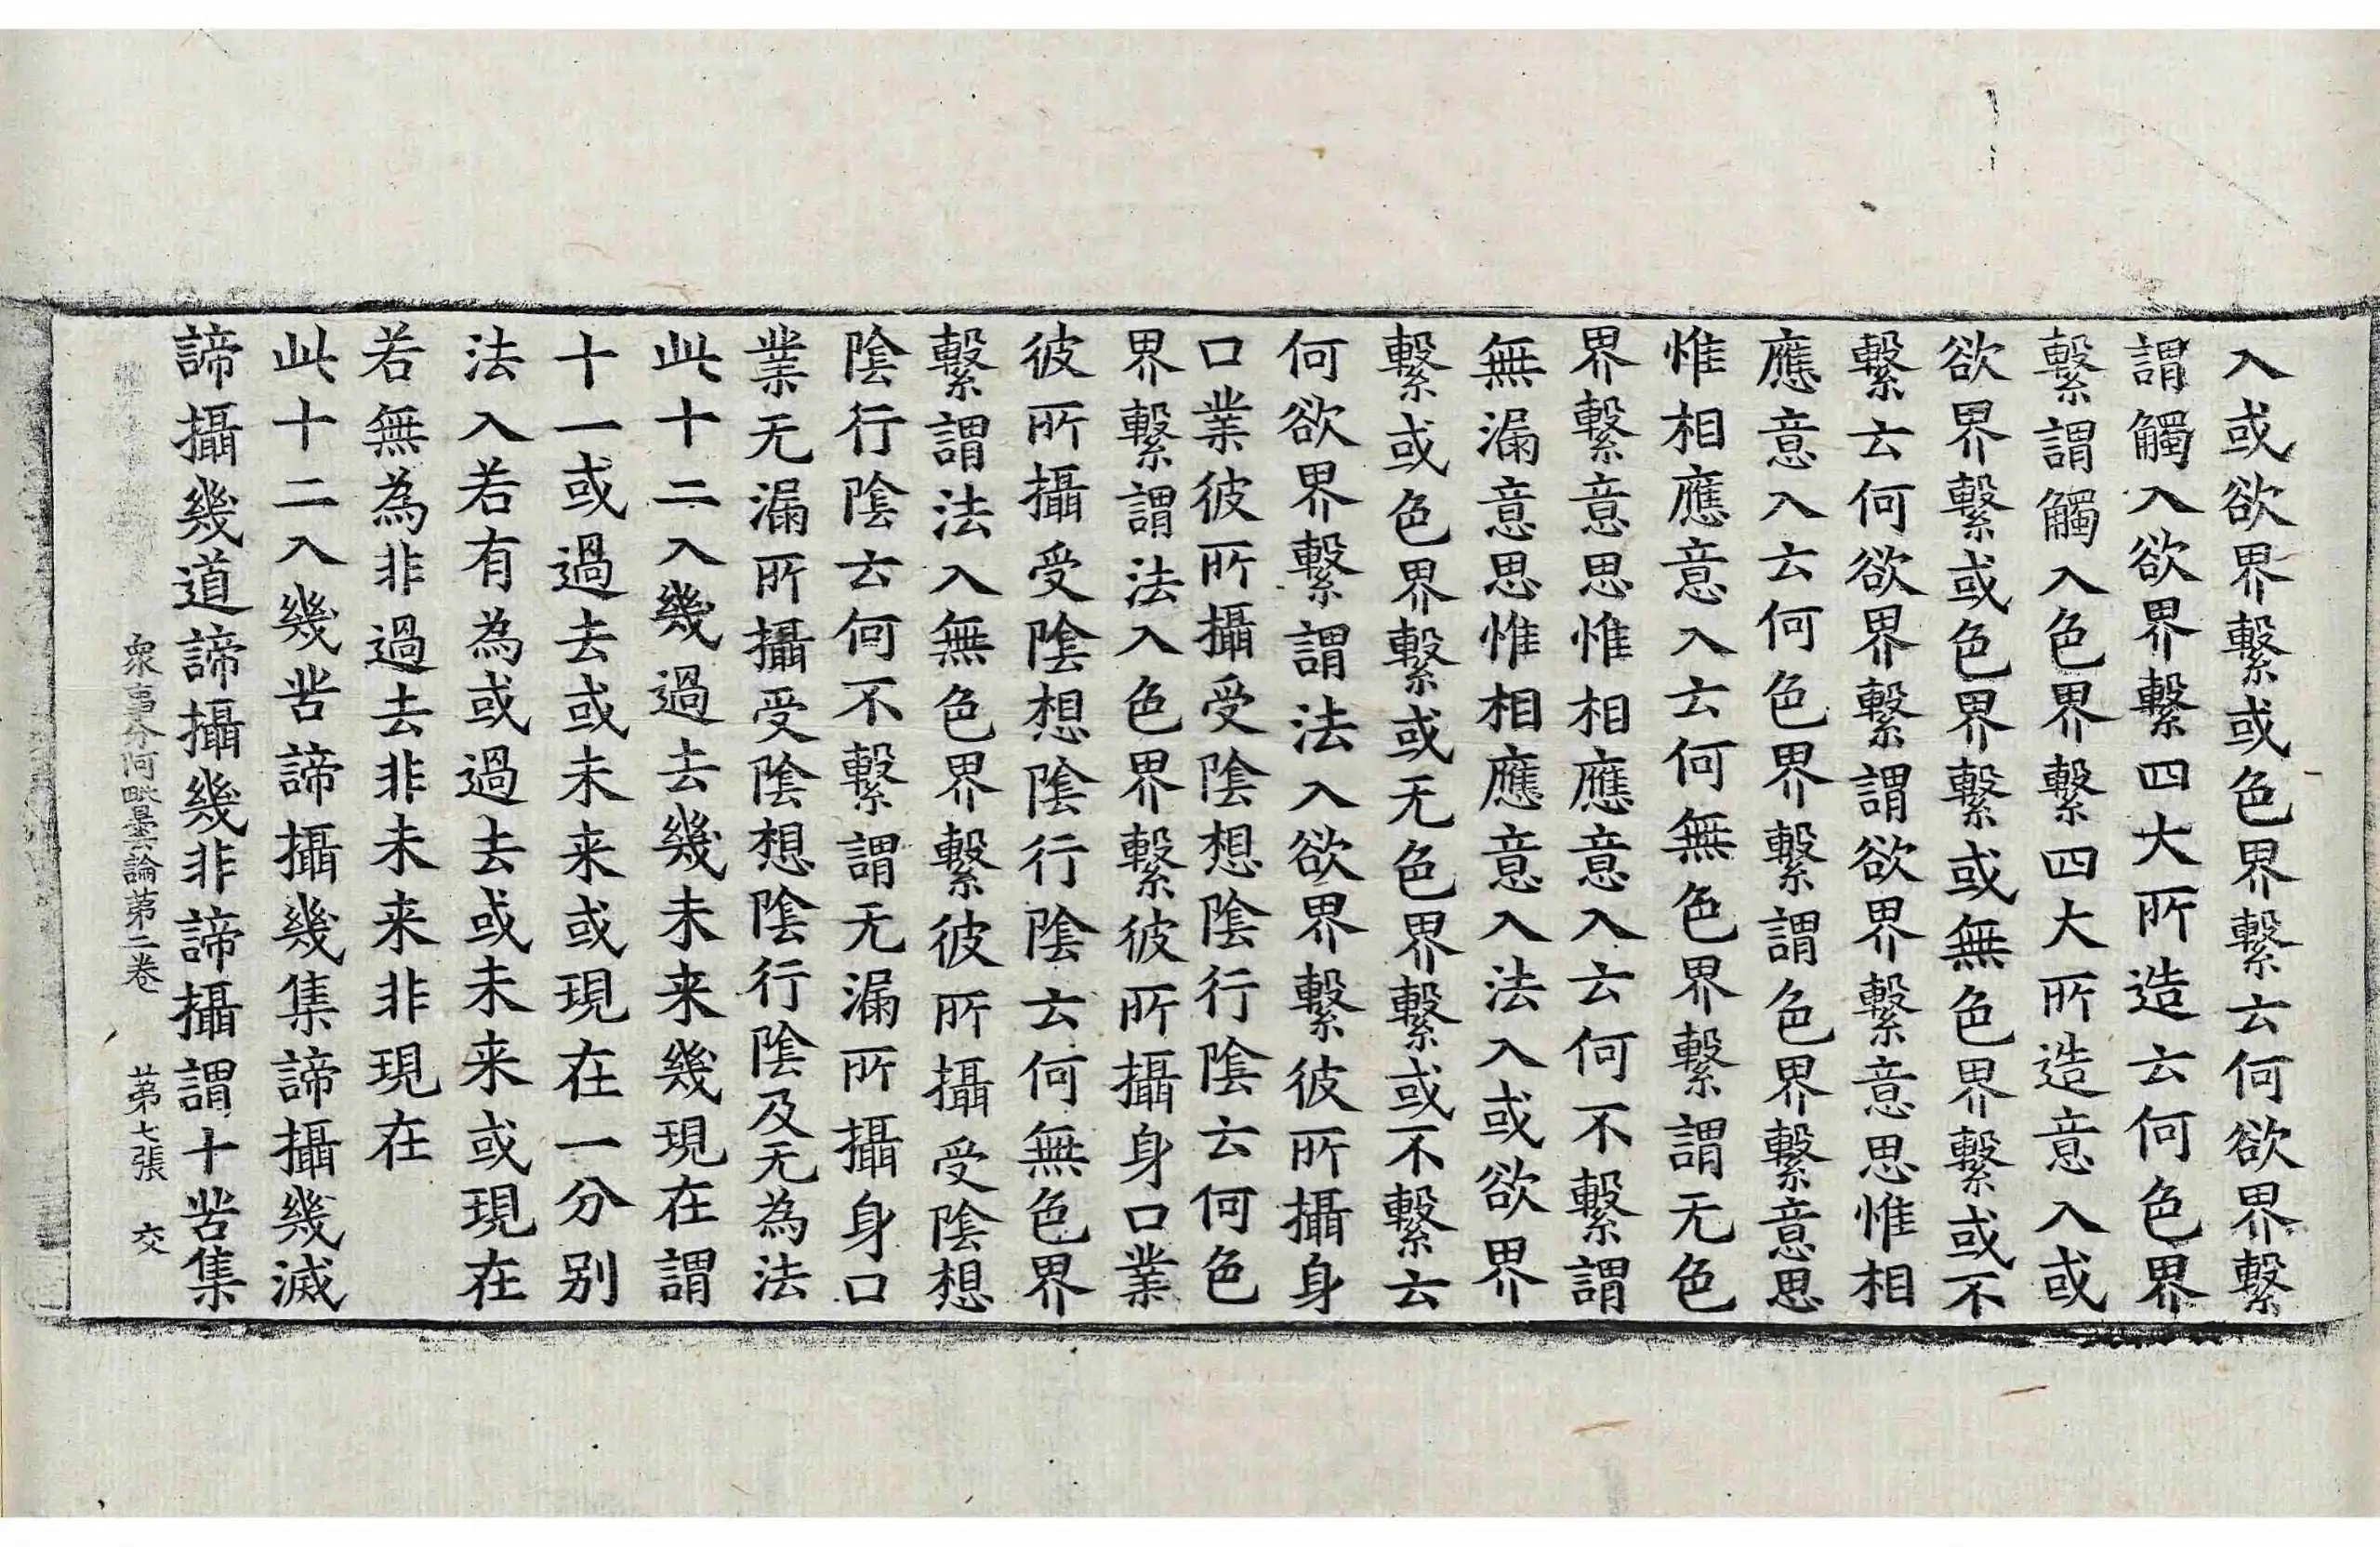 入或欲界繫或色界繫云何欲界繫
謂觸入欲界繫四大所造云何色界
繫謂觸入色界繫四大所造意入或
欲界繫或色界繫或無色界繫或不
繫云何欲界繫謂欲界繫意思惟相
應意入云何色界繫謂色界繫意思
惟相應意入云何無色界繫謂无色
界繫意思惟相應意入云何不繫謂
無漏意思惟相應意入法入或欲界
繫或色界繫或无色界繫或不繫云
何欲界繫謂法入欲界繫彼所攝身
口業彼所攝受陰想陰行陰云何色
界繫謂法入色界繫彼所攝身口業
彼所攝受陰想陰行陰云何無色界
繫謂法入無色界繫彼所攝受陰想
陰行陰云何不繫謂无漏所攝身口
業无漏所攝受陰想陰行陰及无為法
此十二入幾過去幾未来幾現在謂
十一或過去或未来或現在一分別
法入若有為或過去或未来或現在
若無為非過去非未来非現在
此十二入幾苦諦攝幾集諦攝幾滅
諦攝幾道諦攝幾非諦攝謂十苦集
衆事分阿毗曇論第二卷 第七張 交